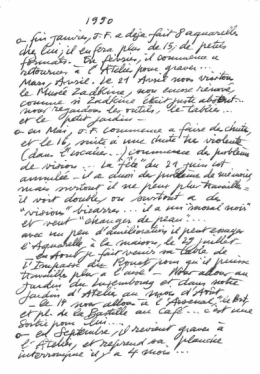 1990
- fin janvier, O.F. a déjà fait 8 aquarelles
chez lui; il en fera plus de 15; de petits
formats. En février, il commence à
retourner à l'Atelier pour graver...
Mars, Avril. Le 21 Avril nous visitons
le Musée Zadkine, non encore rénové
comme si Zadkine était juste absent...
nous regardons les outils, les tables...
et le petit jardin -
- en Mai, O.F. commence à faire de chutes,
et le 16, suite à une chute très violente
(dans l'escalier...) commence de problèmes
de vision... La fête du 21 juin est
annulée - il a aussi de problème de mémoire
mais surtout il ne peut plus travailler =
il voit double, ou surtout a de
"vision bizarre... il a un "moral noir"
et veut "changer de peau"...
avec un peu d'amélioration, il peut essayer
l'Aquarelle, à la maison, le 29 juillet -
en Août, je fait venir sa table de
l'Impasse du Rouet pour qu'il puisse
travailler plus à l'aise - Nous allons au
Jardin du Luxembourg et dans notre
Jardin d'Atelier au mois d'Août
- le 14 nous allons à l'Arsenal,
et pl. de la Bastille au café... c'est une
sortie pour lui...
- en Septembre, il revient graver à
l'Atelier, et reprend sa planche
interrompue il y a 4 mois...